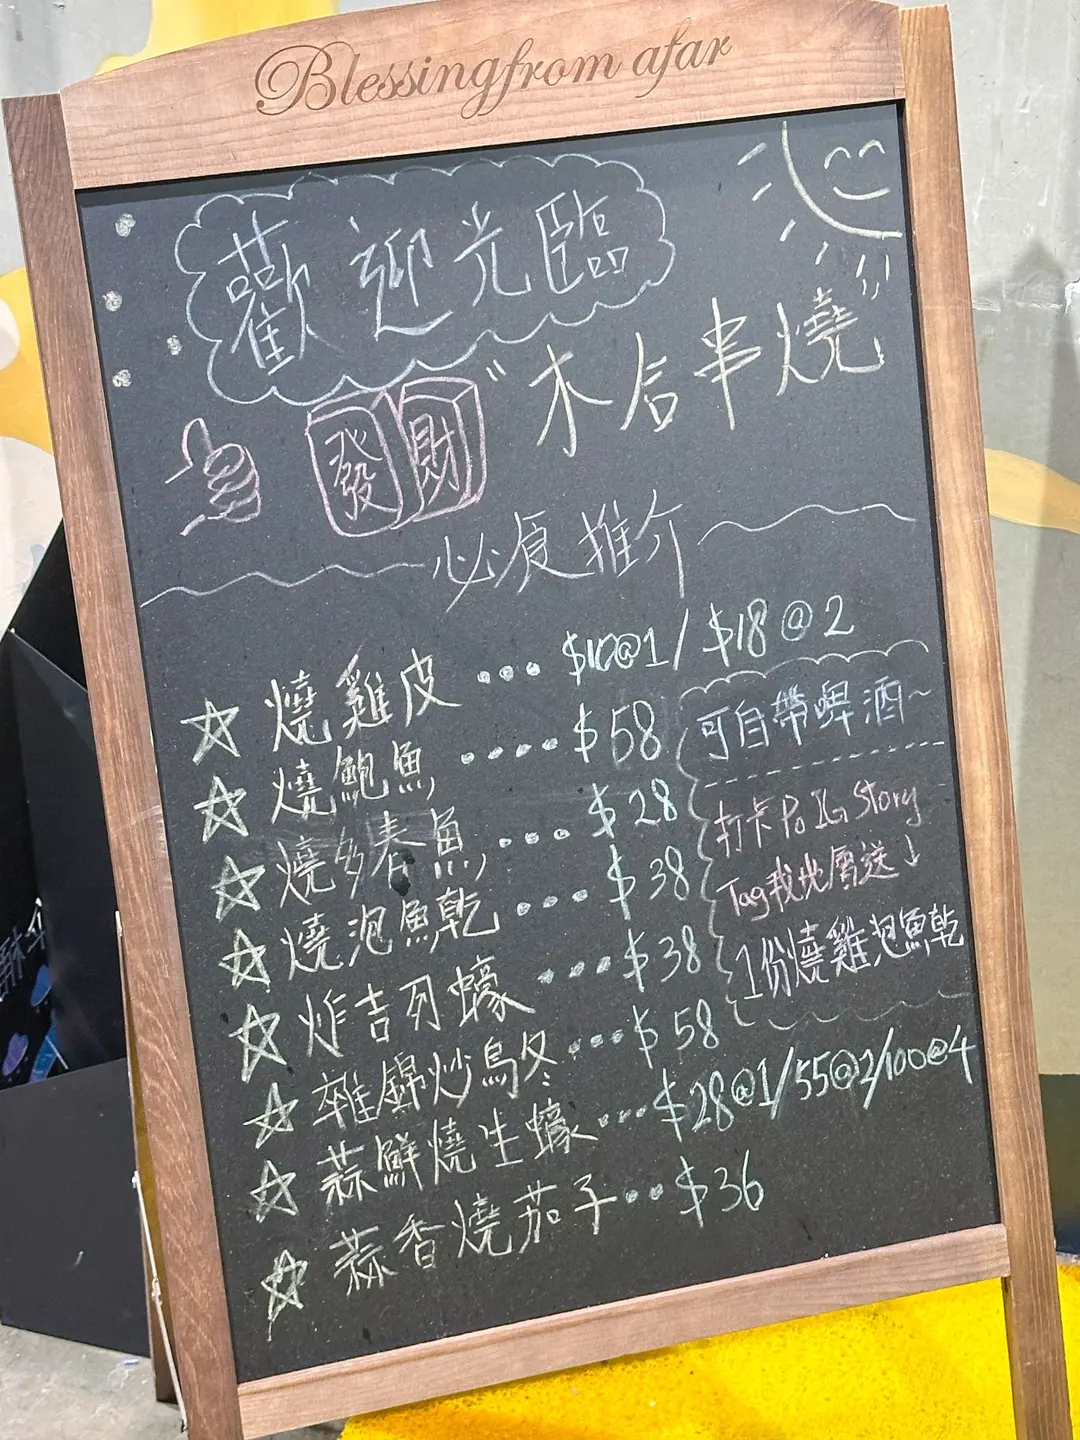 Blessing from afar
歡迎光臨
發財 "木合串燒"
必食推介
燒雞皮 ... $10@1 / $18@2
燒鮑魚 .... $58
燒多春魚 ... $28
燒泡魚乾 ... $38
炸吉列蠔 ... $38
雜錦炒烏冬 ... $58
蒜鮮燒生蠔 ... $28@1/55@2/100@4
蒜香燒茄子 .. $36
可自帶啤酒~
打卡 Po IG Story
Tag我地會送↓
1份燒雞泡魚乾